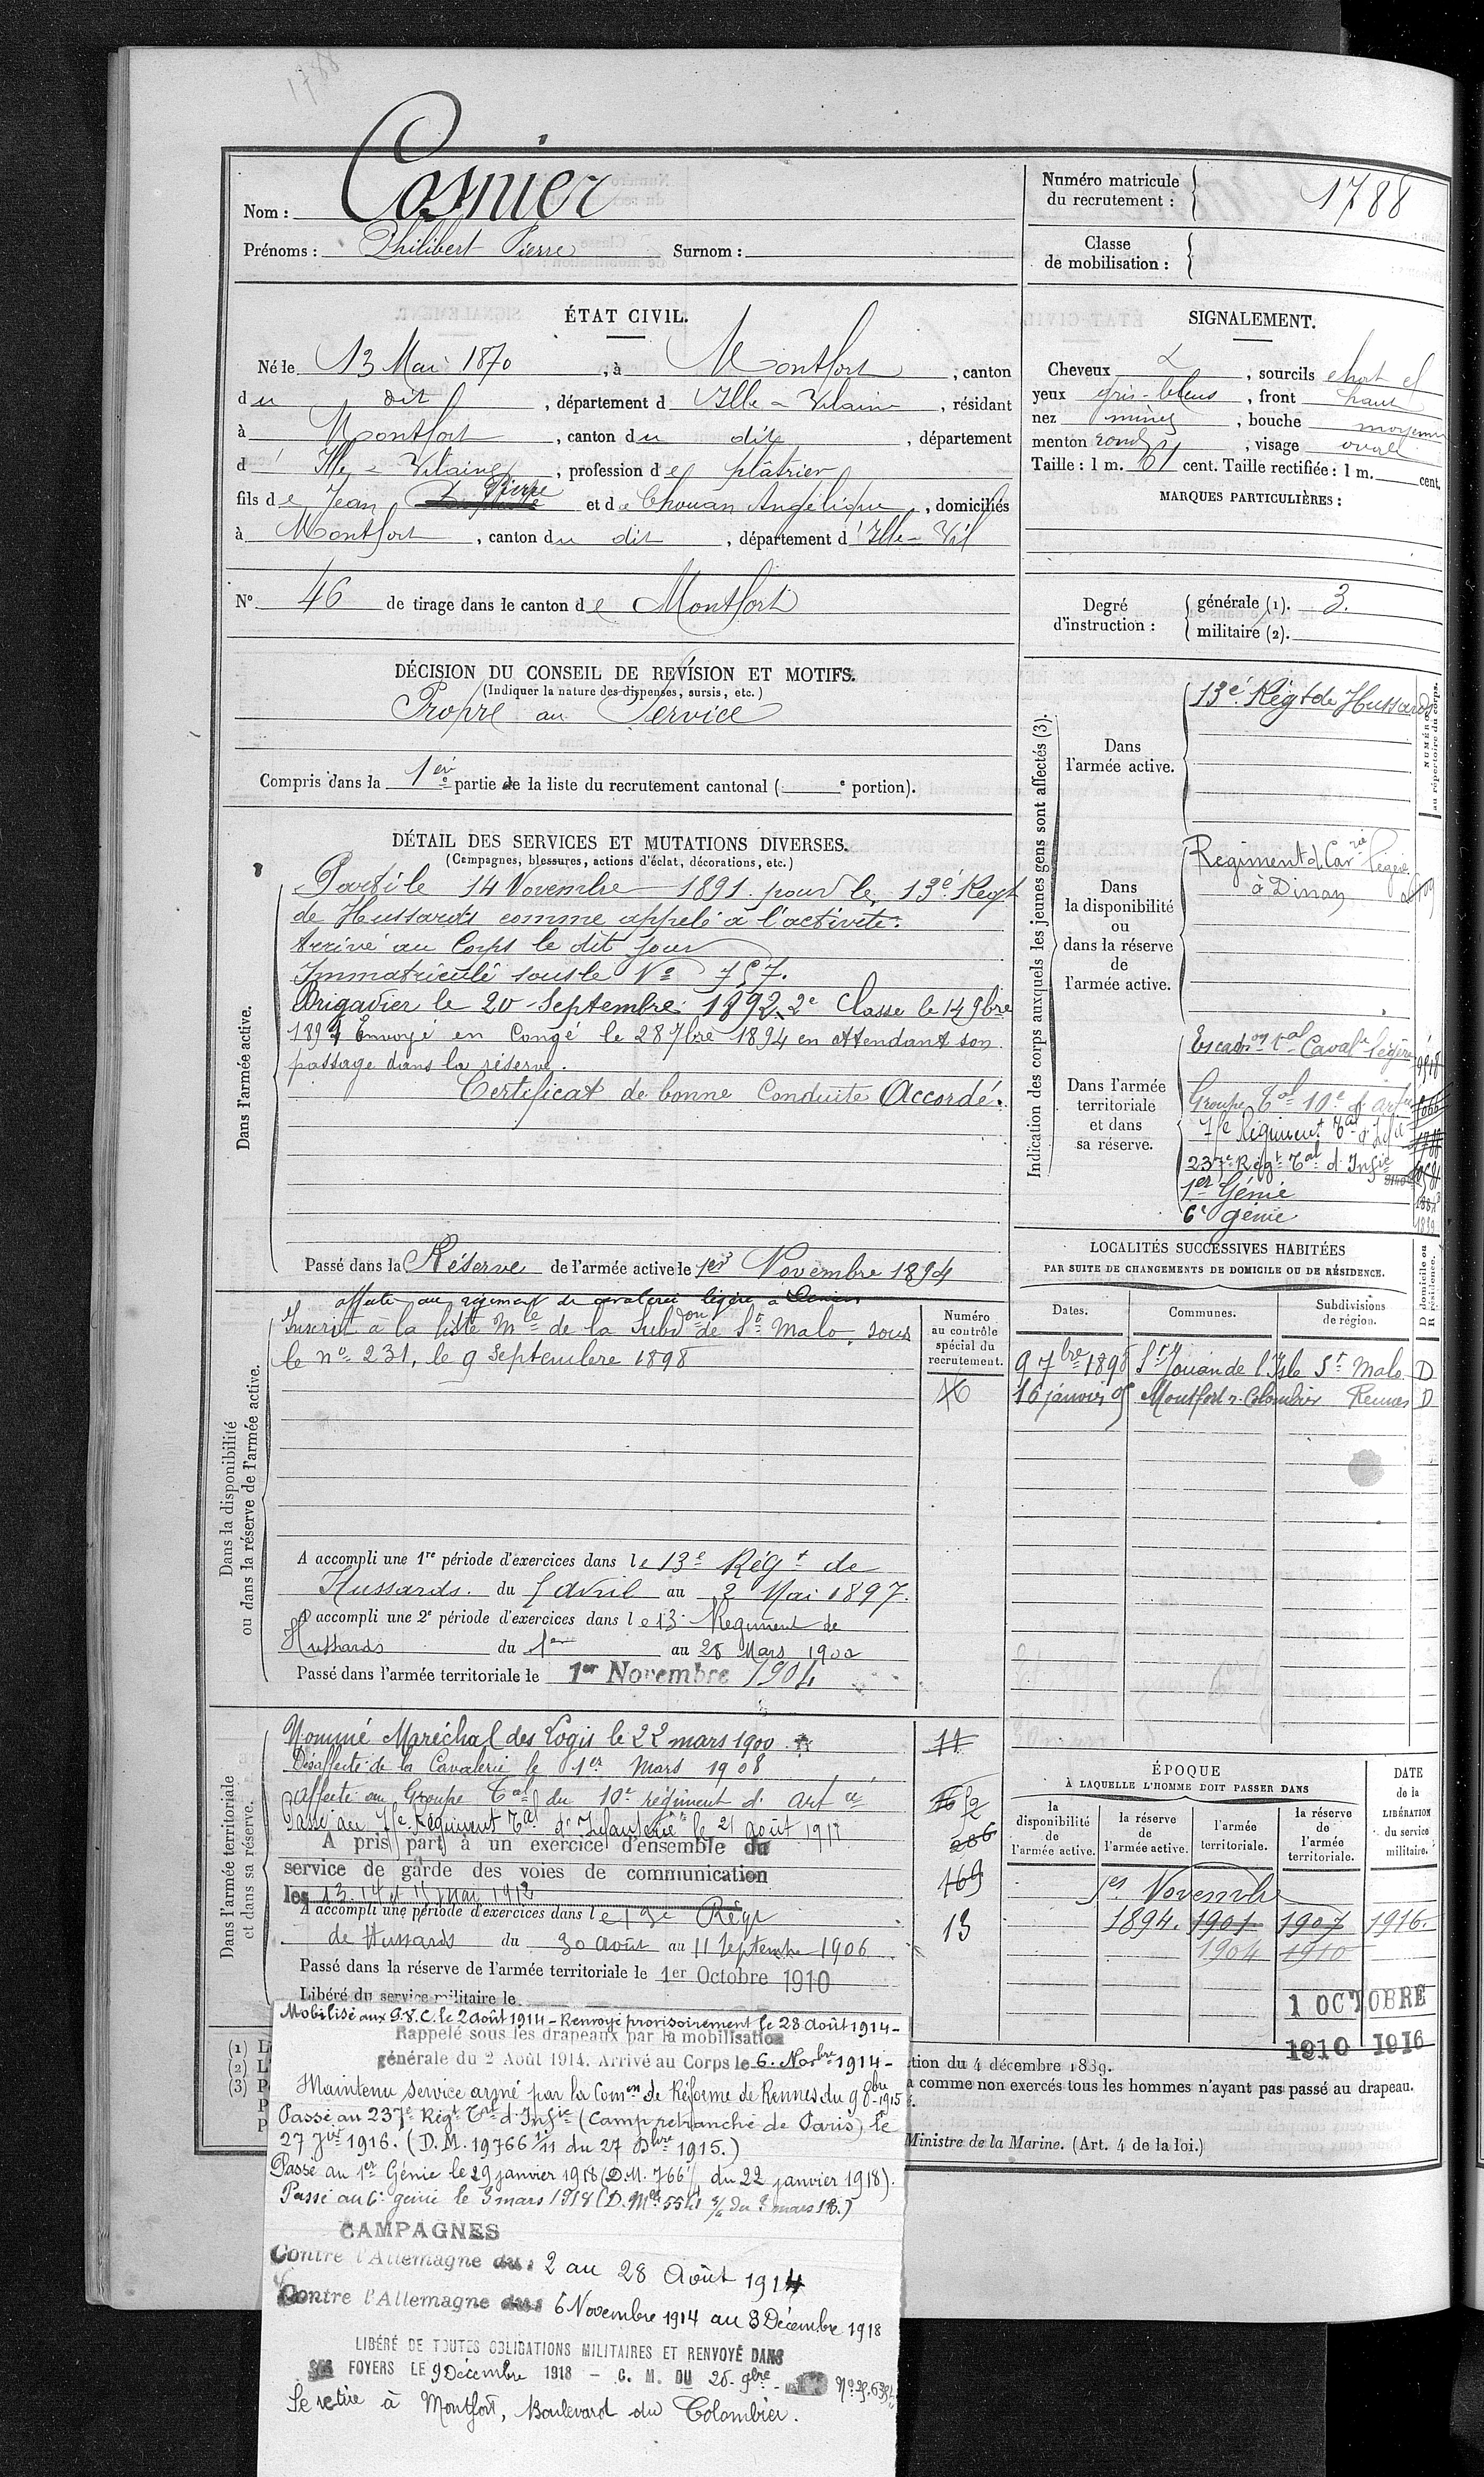 1788
Nom : Cosnier
Prénoms : Philibert Pierre Surnom :
Numéro matricule du recrutement : 1788
Classe de mobilisation :
ÉTAT CIVIL.
Né le 13 Mai 1870, à Montfort, canton
du dit, département d'Ille-Vilaine, résidant
à Montfort, canton du dit, département
d'Ille-Vilaine, profession de plâtrier
fils de Jean Pierre et de Chouan Angélique, domiciliés
à Montfort, canton du dit, département d'Ille-Vil
N° 46 de tirage dans le canton de Montfort
SIGNALEMENT.
Cheveux , sourcils chat
yeux gris-bleus, front haut
nez , bouche moyenne
menton rond, visage ovale
Taille : 1 m. 61 cent. Taille rectifiée : 1 m. cent.
MARQUES PARTICULIÈRES :
Degré d'instruction : générale (1). 3.
militaire (2).
DÉCISION DU CONSEIL DE REVISION ET MOTIFS.
(Indiquer la nature des dispenses, sursis, etc.)
Propre au Service
Compris dans la 1ère partie de la liste du recrutement cantonal ( e portion).
DÉTAIL DES SERVICES ET MUTATIONS DIVERSES.
(Campagnes, blessures, actions d'éclat, décorations, etc.)
Dans l'armée active.
Parti le 14 Novembre 1891 pour le 13e Regt
de Hussards comme appelé à l'activité.
Arrivé au Corps le dit jour
Immatriculé sous le No 757.
Brigadier le 20 Septembre 1892. 2e Classe le 14 9bre
189 Envoyé en Congé le 28 7bre 1894 en attendant son
passage dans la réserve.
Certificat de bonne Conduite Accordé.
Passé dans la Réserve de l'armée active le 1er Novembre 1894
Indication des corps auxquels les jeunes gens sont affectés (3).
NUMÉRO au répertoire du corps.
Dans l'armée active.
13e Régt de Hussards
Dans la disponibilité ou dans la réserve de l'armée active.
Regiment d Carie légère
à Dinan
Dans l'armée territoriale et dans sa réserve.
Escadron tal Cavalie légère
Groupe Tal 10e d'artie
7e Régiment Tal d'Infie
237e Régt Tal d'Infie
1er Génie
6e génie
LOCALITÉS SUCCESSIVES HABITÉES
PAR SUITE DE CHANGEMENTS DE DOMICILE OU DE RÉSIDENCE.
Dates. Communes. Subdivisions de région. D domicile ou R résidence.
9 7bre 1898 St Jouan de l'Isle St Malo D
16 janvier 05 Montfort r. Colombier Rennes D
Dans la disponibilité ou dans la réserve de l'armée active.
affecté au régiment de cavalerie légère à
Inscrit à la liste Mle de la Subdon de St Malo, sous
le no 231, le 9 Septembre 1898
Numéro au contrôle spécial du recrutement.
A accompli une 1re période d'exercices dans le 13e Régt de
Hussards. du 5 avril au 2 Mai 1897.
A accompli une 2e période d'exercices dans le 13 Regiment de
Hussards du 1er au 28 Mars 1900
Passé dans l'armée territoriale le 1er Novembre 1904
Dans l'armée territoriale et dans sa réserve.
Nommé Maréchal des Logis le 22 mars 1900
Désaffecté de la Cavalerie le 1er Mars 1908
Affecté au Groupe Tal du 10e régiment d' artie
Passé au 7e Régiment Tal d'Infanterie le 21 août 1911
A pris part à un exercice d'ensemble du
service de garde des voies de communication
les 13. 14 et 15 mai 1912
A accompli une période d'exercices dans le 13e Régt
de Hussards du 30 août au 11 Septembre 1906
Passé dans la réserve de l'armée territoriale le 1er Octobre 1910
Libéré du service militaire le
11
286
169
13
ÉPOQUE
À LAQUELLE L'HOMME DOIT PASSER DANS
la disponibilité de l'armée active. la réserve de l'armée active. l'armée territoriale. la réserve de l'armée territoriale.
DATE de la LIBÉRATION du service militaire.
1er Novembre
1894. 1901 1907 1916.
1904 1910
1 OCTOBRE
1910 1916
Mobilisé aux G.V.C. le 2 août 1914 - Renvoyé provisoirement le 28 août 1914 -
Rappelé sous les drapeaux par la mobilisation
générale du 2 Août 1914. Arrivé au Corps le 6. Novbre 1914 -
Maintenu service armé par la Comon de Réforme de Rennes du 9 8bre 1915
Passé au 237e Régt Tal d'Infie (Camp retranché de Paris) le
27 1916. (D.M. 19766 1/11 du 27 Dbre 1915.)
Passé au 1er Génie le 29 janvier 1918 (D.M. 766 du 22 janvier 1918).
Passé au 6e génie le 3 mars 1918 (D. Mlle 5541 du 3 mars 18.)
CAMPAGNES
Contre l'Allemagne du : 2 au 28 Août 1914
Contre l'Allemagne du 6 Novembre 1914 au 8 Décembre 1918
LIBÉRÉ DE TOUTES OBLIGATIONS MILITAIRES ET RENVOYÉ DANS
SES FOYERS LE 9 Décembre 1918 - C. M. DU 25. 9bre
Se retire à Montfort, Boulevard du Colombier.
(1) L
(2) L'
(3) P
P
P
tion du 4 décembre 1889.
a comme non exercés tous les hommes n'ayant pas passé au drapeau.
Ministre de la Marine. (Art. 4 de la loi.)